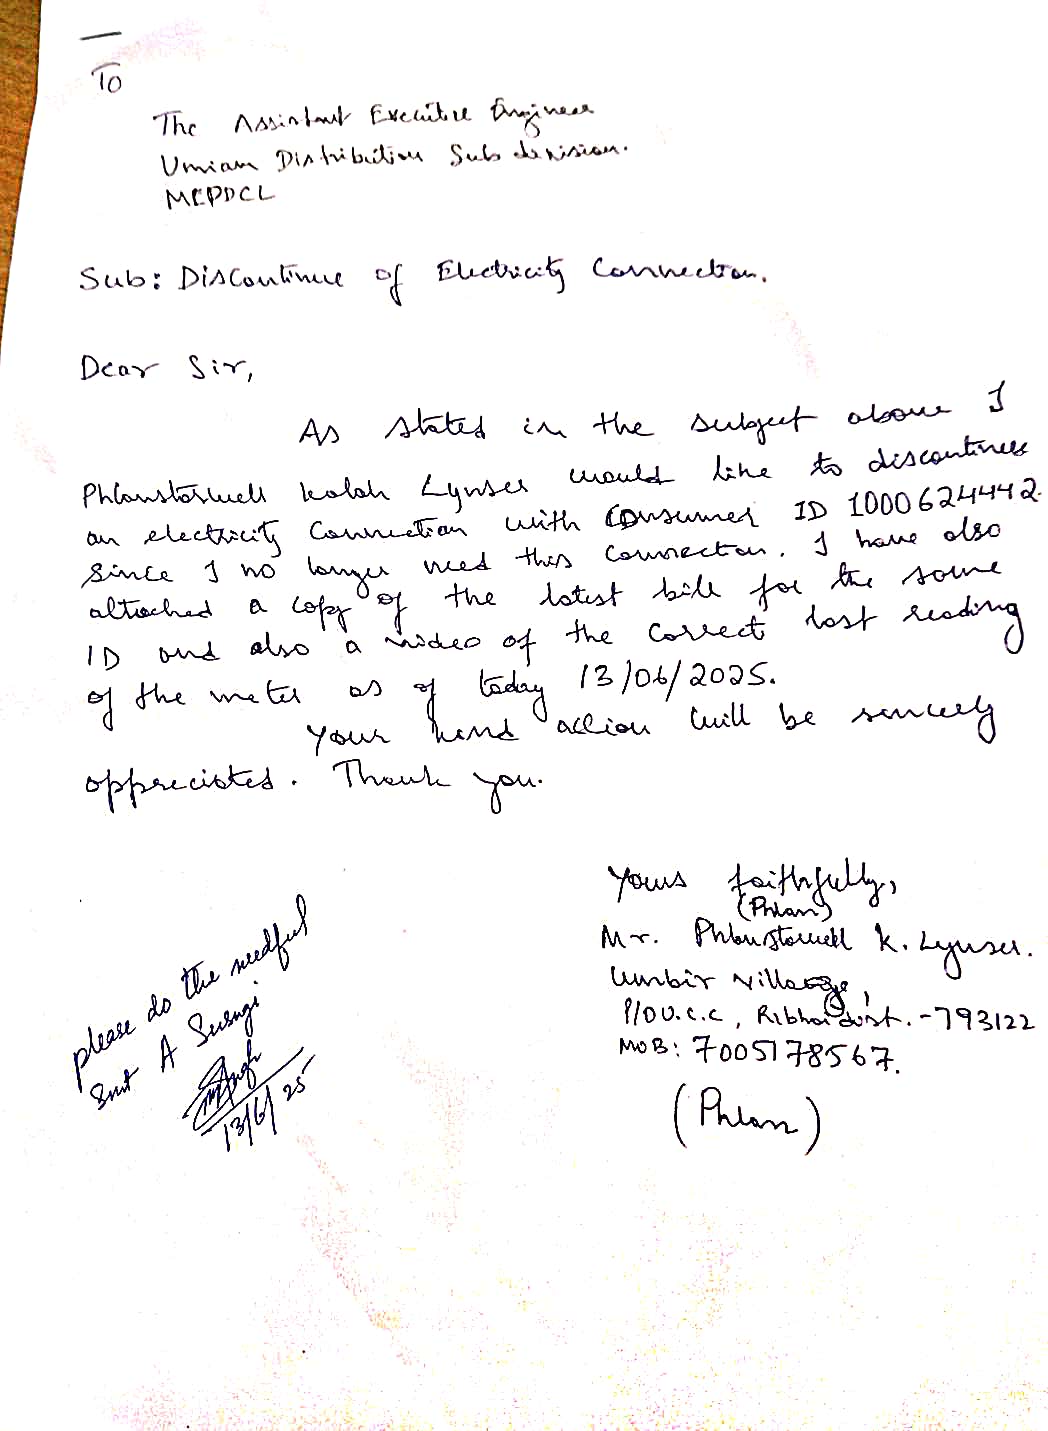 To
The Assistant Executive Engineer
Umiam Distribution Sub division.
MEPDCL
Sub: Discontinue of Electricity Connection.
Dear Sir,
As stated in the subject above I
Phlanstarwell kolah Lynser would like to discontinue
an electricity Connection with Consumer ID 1000624442.
Since I no longer need this connection. I have also
attached a copy of the latest bill for the same
ID and also a video of the correct last reading
of the meter as of today 13/06/2025.
Your kind action will be sincerely
appreciated. Thank you.
Yours faithfully,
(Phlan)
Mr. Phlanstarwell K. Lynser.
Umbir Village,
P/O U.C.C, Ribhoi dist. - 793122
MOB: 7005178567.
(Phlan)
please do the needful
Smt A Susngi
13/6/25